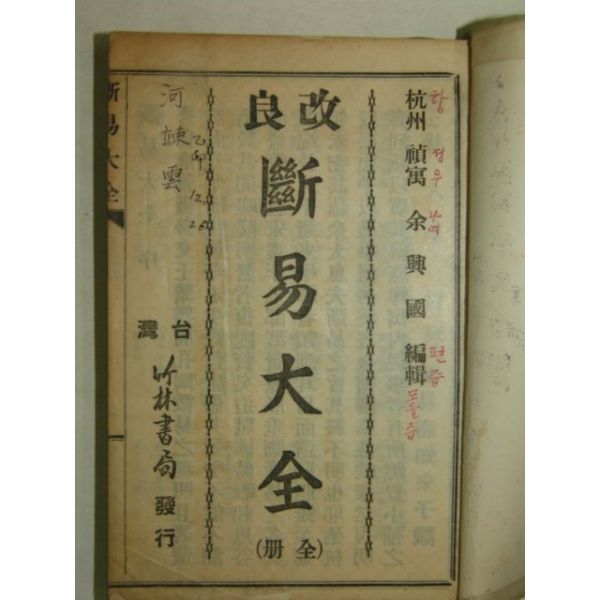 杭州禎寓余興國編輯
항
정
우
여
편
즙
모을즙
改良
斷易大全
(全册)
台灣
竹林書局發行
河
雲
乙卯 12. 25
斷易大全